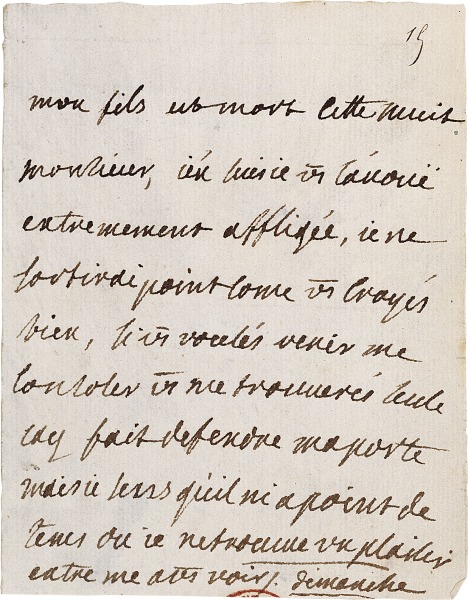 15
mon fils est mort cette nuit
monsieur, i'én suis ie vs l'avouë
extremement affligée, ie ne
sortirai point come vs croyés
bien, si vs voulés venir me
consoler vs me trouuerés seule
iay fait defendre ma porte
mais ie sens qu'il ni a point de
tems ou ie ne trouue vn plaisir
extreme a vs voir. dimanche